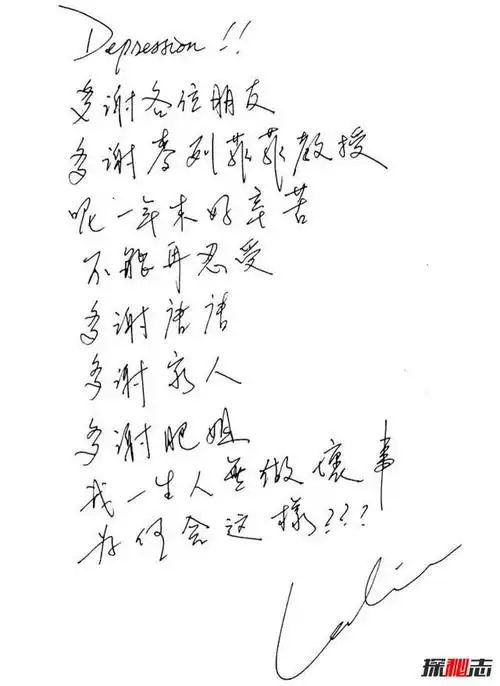 Depression!!
多谢各位朋友
多谢麥列菲菲教授
呢一年来好辛苦
不能再忍受
多谢唐唐
多谢家人
多谢肥姐
我一生人無做壞事
为何会这樣???
Leslie
探秘志